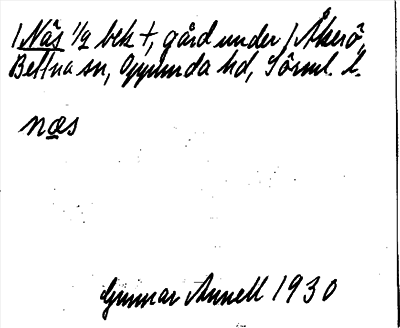 /Näs ½ bek +, gård under /Åkerö,
Bettna sn, Oppunda hd, Sörml. l.
næs
Gunnar Annell 1930